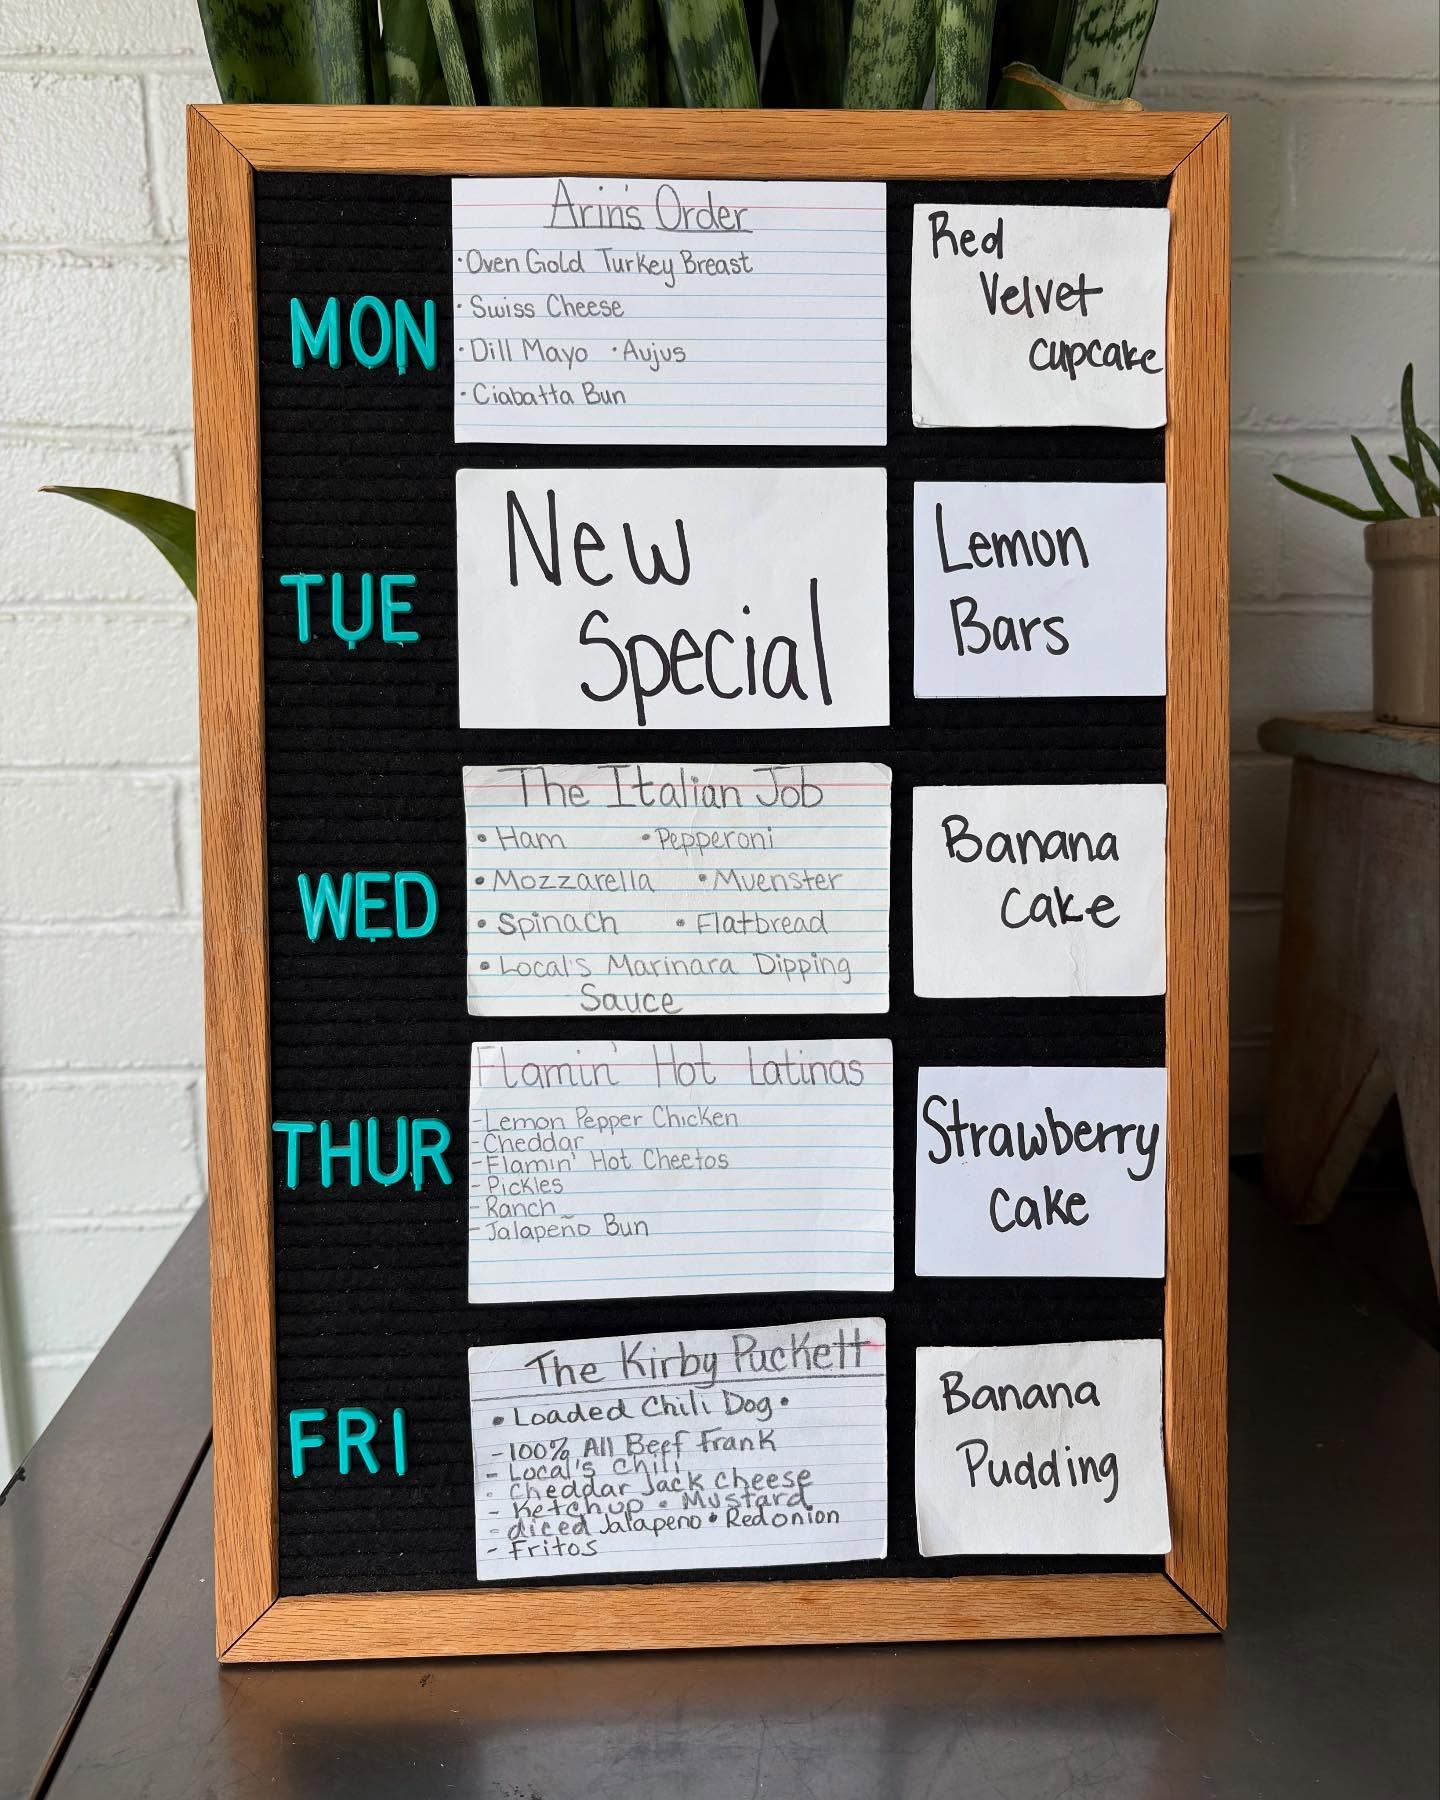 MON
Arin's Order
·Oven Gold Turkey Breast
·Swiss Cheese
·Dill Mayo ·Aujus
·Ciabatta Bun
Red
Velvet
cupcake
TUE
New
Special
Lemon
Bars
WED
The Italian Job
•Ham •Pepperoni
•Mozzarella •Muenster
•Spinach •Flatbread
•Local's Marinara Dipping
Sauce
Banana
Cake
THUR
Flamin' Hot Latinas
-Lemon Pepper Chicken
-Cheddar
-Flamin' Hot Cheetos
-Pickles
-Ranch
-Jalapeño Bun
Strawberry
Cake
FRI
The Kirby Puckett
•Loaded Chili Dog•
-100% All Beef Frank
- Local's Chili
· Cheddar Jack Cheese
- Ketchup • Mustard
- diced Jalapeno • Red onion
- Fritos
Banana
Pudding